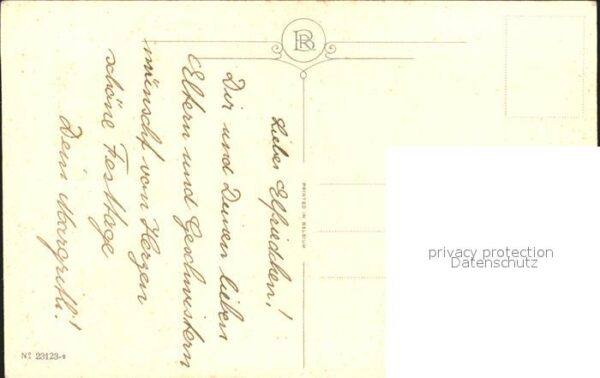 Liebes Elfriedchen!
Dir und Deinen lieben
Eltern und Geschwistern
wünscht von Herzen
schöne Festtage
Dein Margritli!
BR
PRINTED IN BELGIUM
No 23123-
privacy protection
Datenschutz